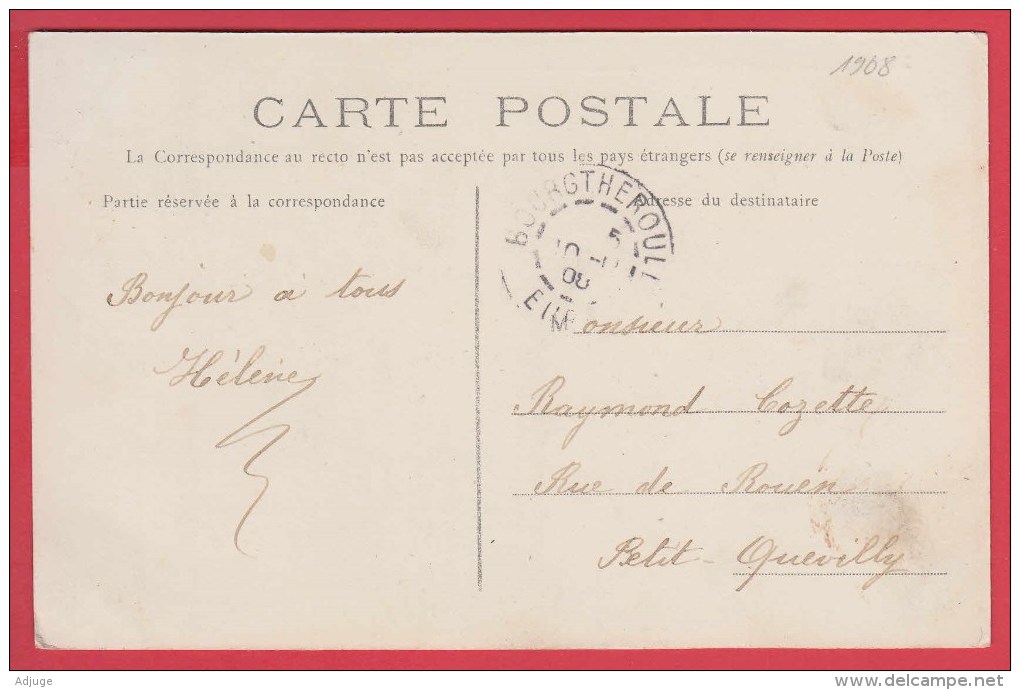 1908
CARTE POSTALE
La Correspondance au recto n'est pas acceptée par tous les pays étrangers (se renseigner à la Poste)
Partie réservée à la correspondance
Adresse du destinataire
BOURGTHEROULDE
5
10
08
EURE
Bonjour à tous
Hélène
Monsieur
Raymond Cozette
Rue de Rouen
Petit-Quevilly
Adjuge
www.delcampe.net